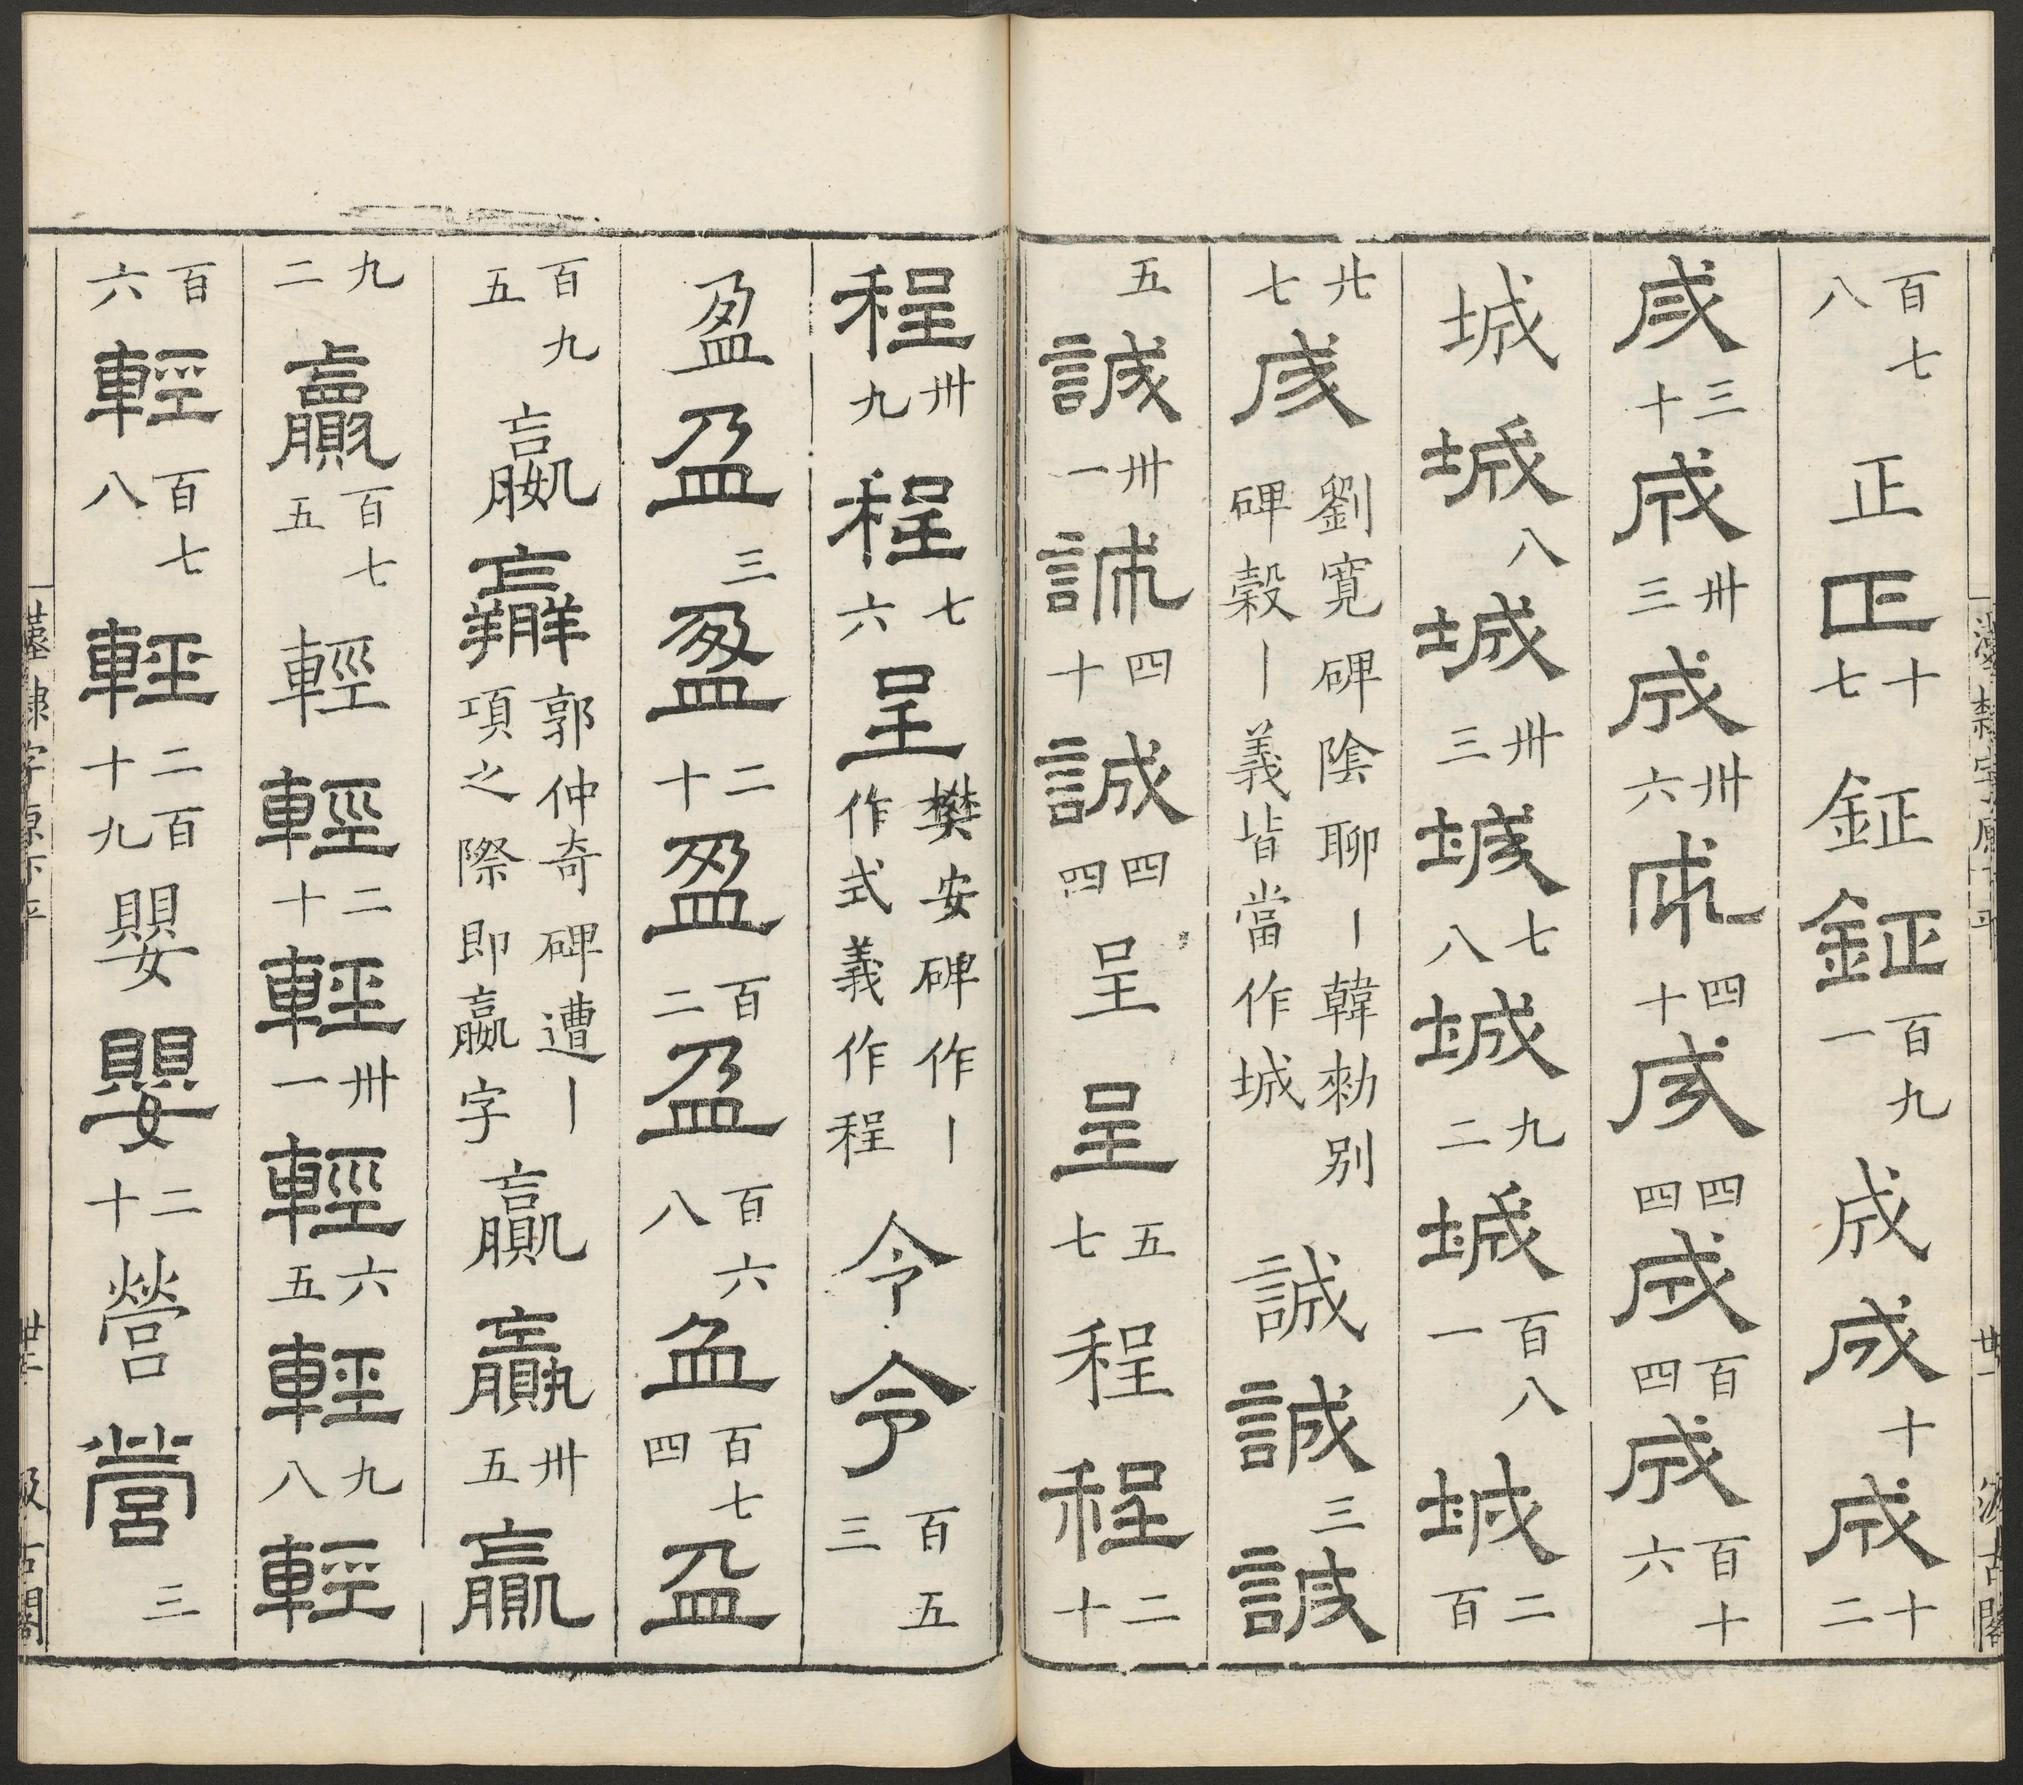 百七八正正十七鉦鉦百九一成成十成十二
成三十成卅三成卅六成四十成四四成百四成百十六
城城八城卅三城七八城九二城百八一城二百
廿七成劉寬碑陰聊丨韓勑別碑穀丨義皆當作城誠誠三誠
五誠卅一誠四十誠四四呈呈五七程程二十
程卅九程七六呈樊安碑作丨作式義作程令令百五三
盈盈三盈二十盈百二盈百六八盈百七四盈
百九五嬴嬴郭仲奇碑遭丨項之際即嬴字贏贏卅五贏
九二贏百七五輕輕二十輕卅一輕六五輕九八輕
百六輕百七八輕二百十九嬰嬰二十營營三
漢隸字源下平 廿一 汲古閣
漢隸字源下平 廿二 汲古閣